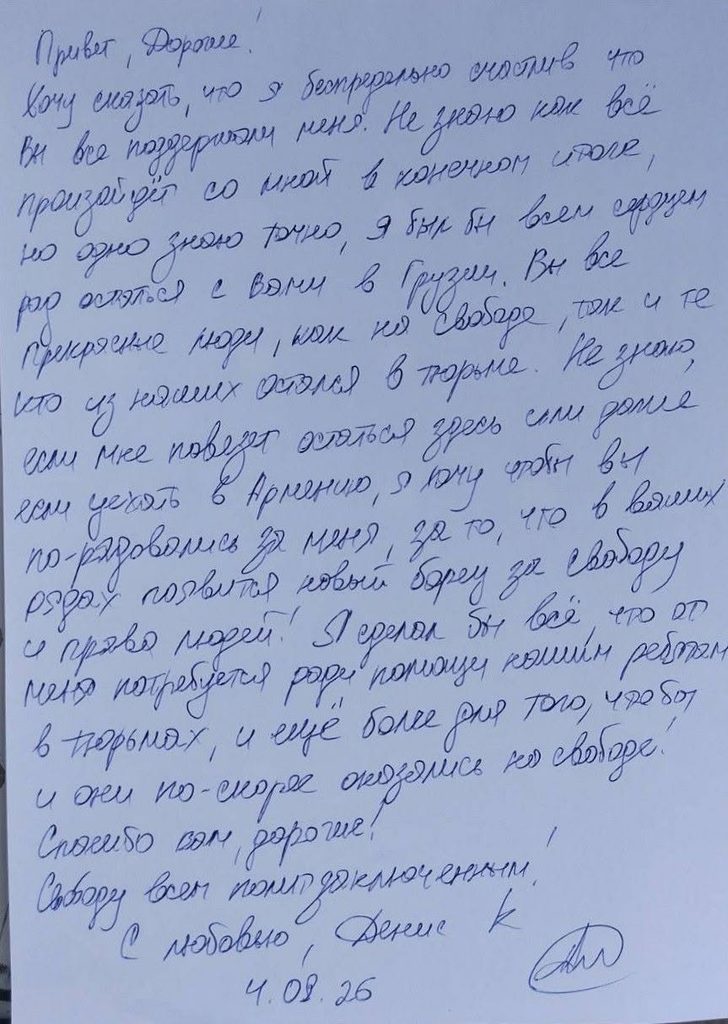 Привет, Дорогие!
Хочу сказать, что я беспредельно счастлив что
Вы все поддержали меня. Не знаю как всё
произайдёт со мной в конечном итоге,
но одно знаю точно, я был бы всем сердцем
рад остаться с Вами в Грузии. Вы все
прекрасные люди, как на свободе, так и те
кто из наших остался в тюрьме. Не знаю,
если мне повезет остаться здесь или даже
если уехать в Армению, я хочу чтобы вы
по-радовались за меня, за то, что в ваших
рядах появится новый борец за свободу
и права людей! Я сделал бы всё, что от
меня потребуется ради помощи нашим ребятам
в тюрьмах, и ещё более для того, чтобы
и они по-скорее оказались на свободе!
Спасибо вам, дорогие!
Свободу всем политзаключенным!
С любовью, Денис К
4.09.26